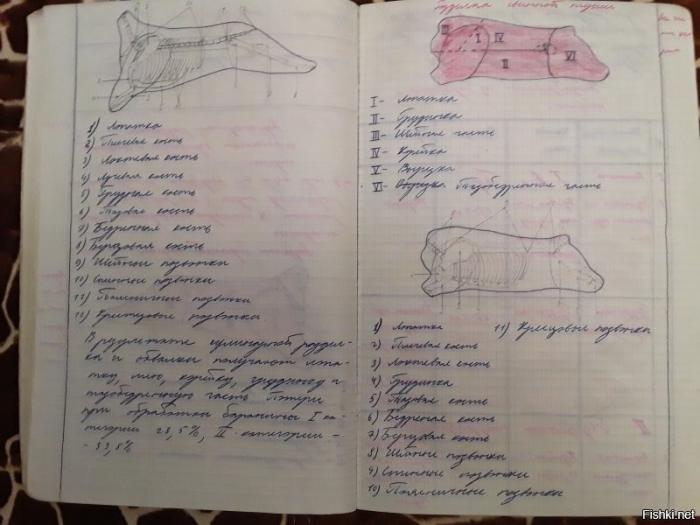 1) Лопатка
2) Плечевая кость
3) Локтевая кость
4) Лучевая кость
5) Грудная кость
6) Тазовая кость
7) Бедренная кость
8) Берцовая кость
9) Шейные позвонки
10) Спинные позвонки
11) Поясничные позвонки
12) Крестцовые позвонки
В результате кулинарной раздел-
ки и обвалки получают лопа-
тку, шею, корейку, грудинку и
тазобедренную часть. Потери
при обработке баранины I ка-
тегории 28,5%, II категории -
- 33,8%
Разделка свиной туши
III
I
IV
II
V
VI
I - Лопатка
II - Грудинка
III - Шейная часть
IV - Корейка
V - Вырезка
VI - Тазобедренная часть
1) Лопатка
2) Плечевая кость
3) Локтевая кость
4) Грудинка
5) Тазовая кость
6) Бедренная кость
7) Берцовая кость
8) Шейные позвонки
9) Спинные позвонки
10) Поясничные позвонки
11) Крестцовые позвонки
Fishki.net